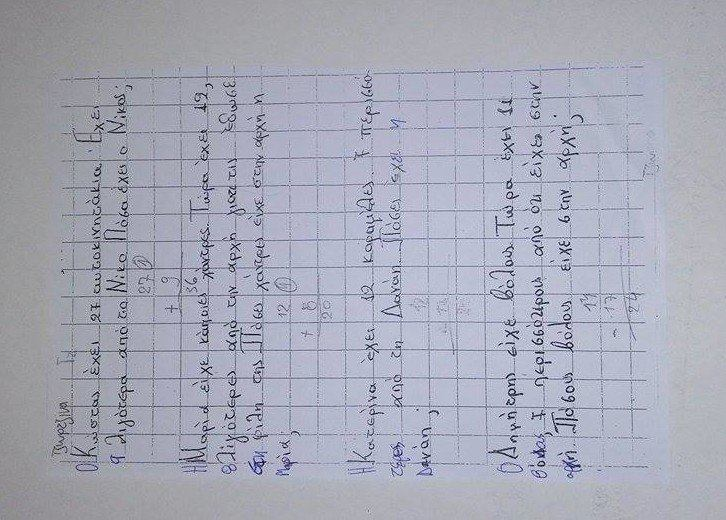 Τζωρτζίνα Γ2
Ο Κώστας έχει 27 αυτοκινητάκια. Έχει
9 λιγότερα από το Νίκο. Πόσα έχει ο Νίκος;
27
+ 9
36
Η Μαρία είχε κάποιες χάντρες. Τώρα έχει 12,
8 λιγότερες από την αρχή γιατί τις έδωσε
στη φίλη της. Πόσες χάντρες είχε στην αρχή η
Μαρία;
12
+ 8
20
Η Κατερίνα έχει 12 καραμέλες, 7 περισσό-
τερες από τη Δανάη. Πόσες έχει η
Δανάη;
12
Ο Δημήτρης είχε βόλους. Τώρα έχει 11
βόλους, 7 περισσότερους από ότι είχε στην
αρχή. Πόσους βόλους είχε στην αρχή;
17
24